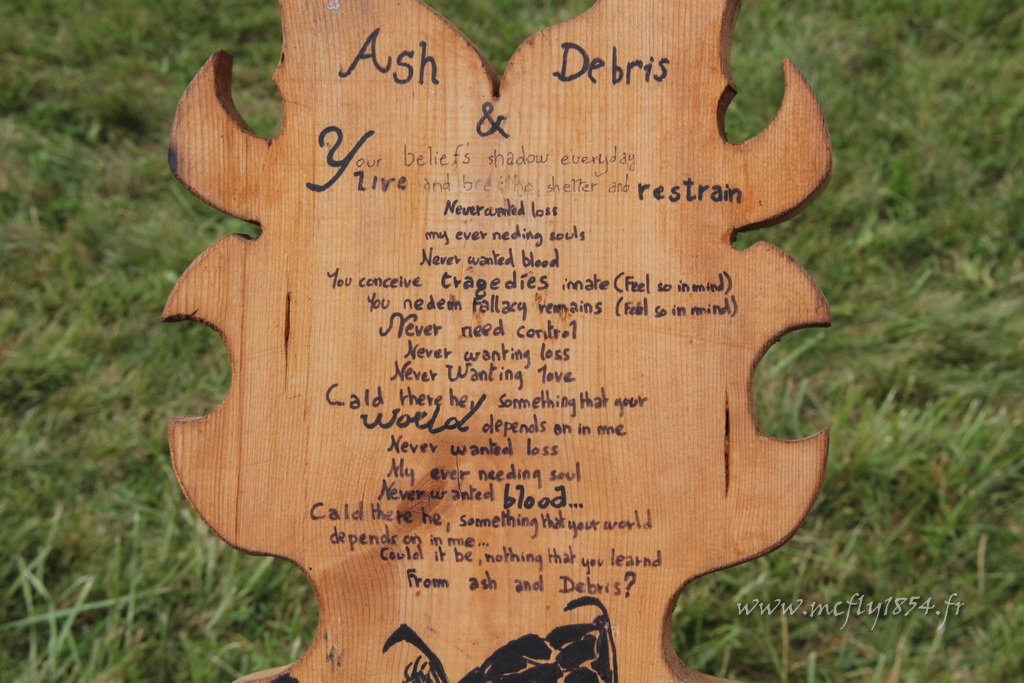 Ash Debris
&
Your beliefs shadow everyday
live and breathe, shelter and restrain
Never wanted loss
my ever neding souls
Never wanted blood
You conceive tragedies innate (Feel so in mind)
You nedem fallacy remains (Feel so in mind)
Never need control
Never wanting loss
Never Wanting love
Cald there he, something that your
world depends on in me
Never wanted loss
My ever needing soul
Never wanted blood...
Cald there he, something that your world
depends on in me...
Could it be, nothing that you learnd
From ash and Debris?
www.mcfly1854.fr